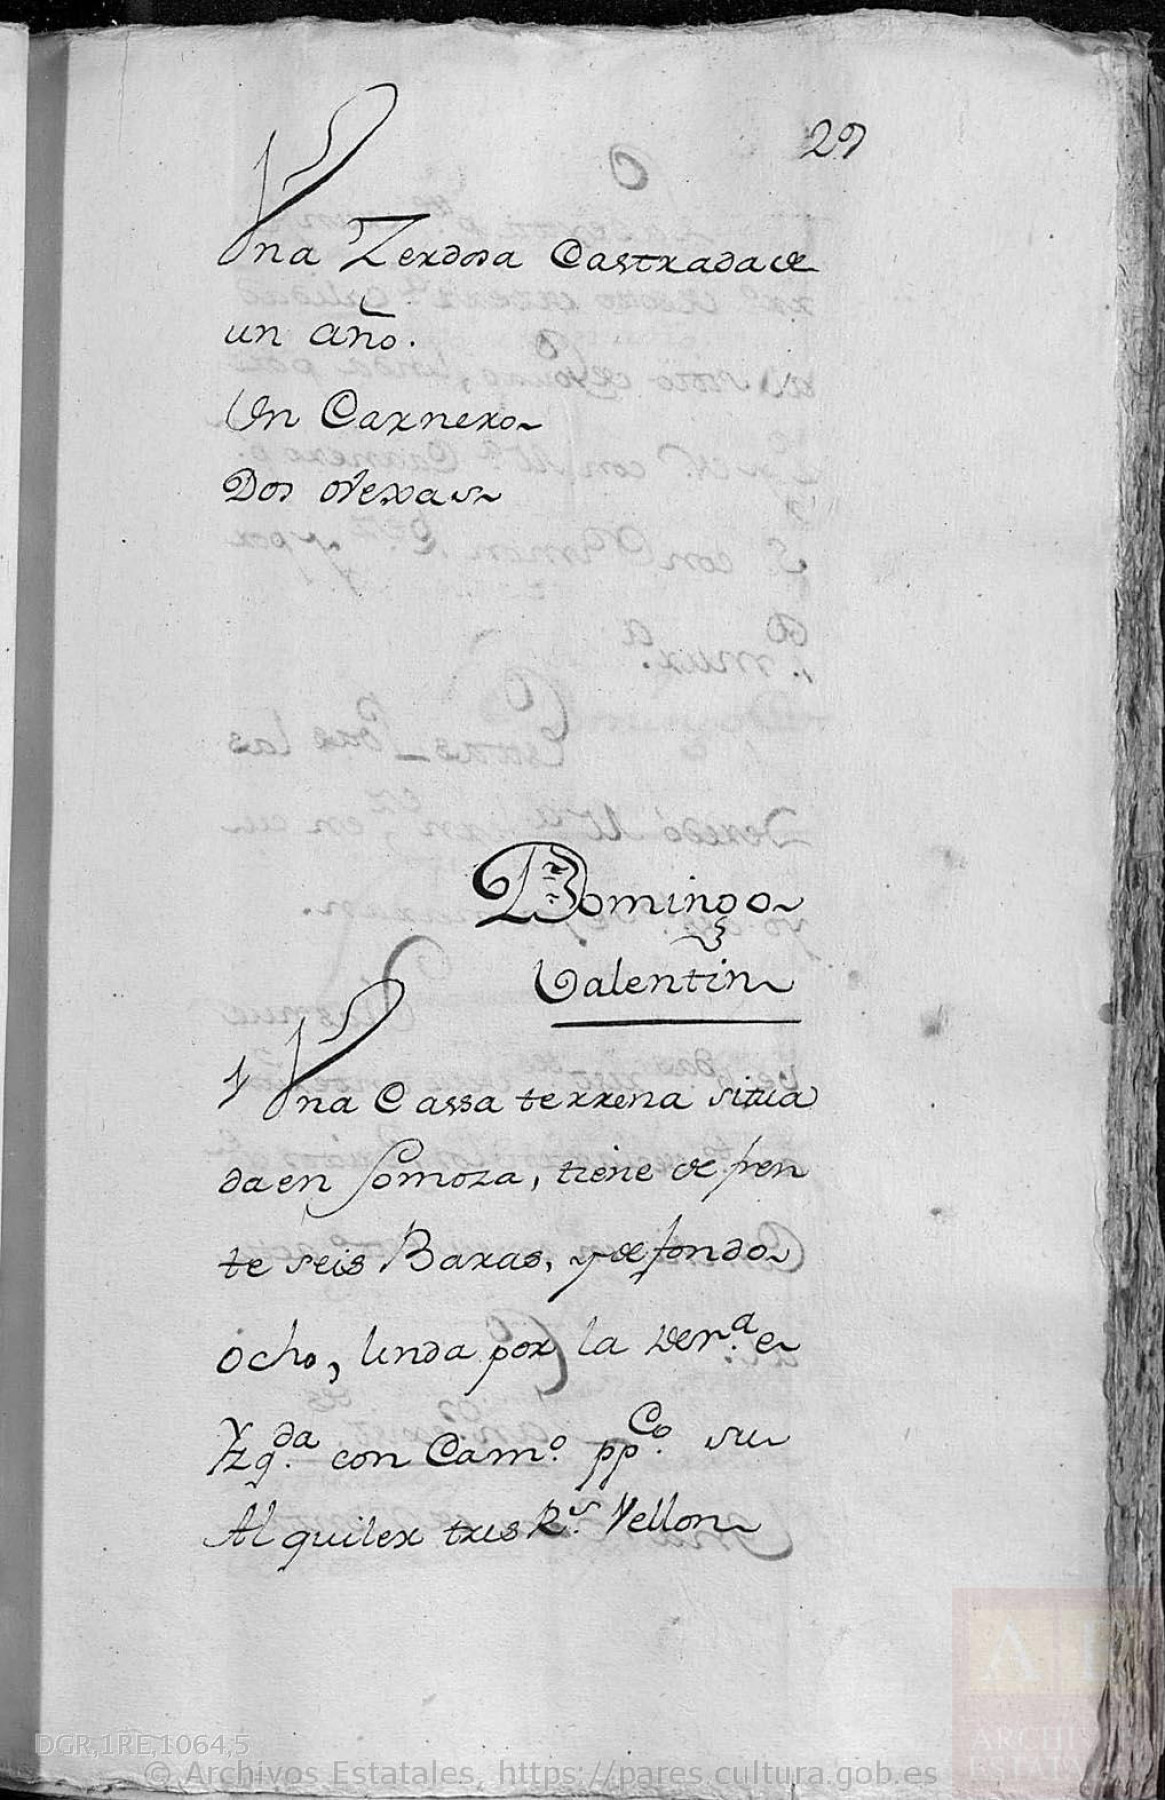 29
Una Zerdosa Castrada de
un año.
Un Carnero
Dos ovexas
Domingo
Valentin
1 Una Cassa terrena situa
da en Somoza, tiene de fren
te seis Baras, y de fondo
ocho, linda por la Der.ª e
Yzq.da con Cam.º pp.co su
Alquiler tres R.s Vellon
DGR,1RE,1064,5
© Archivos Estatales, https://pares.cultura.gob.es